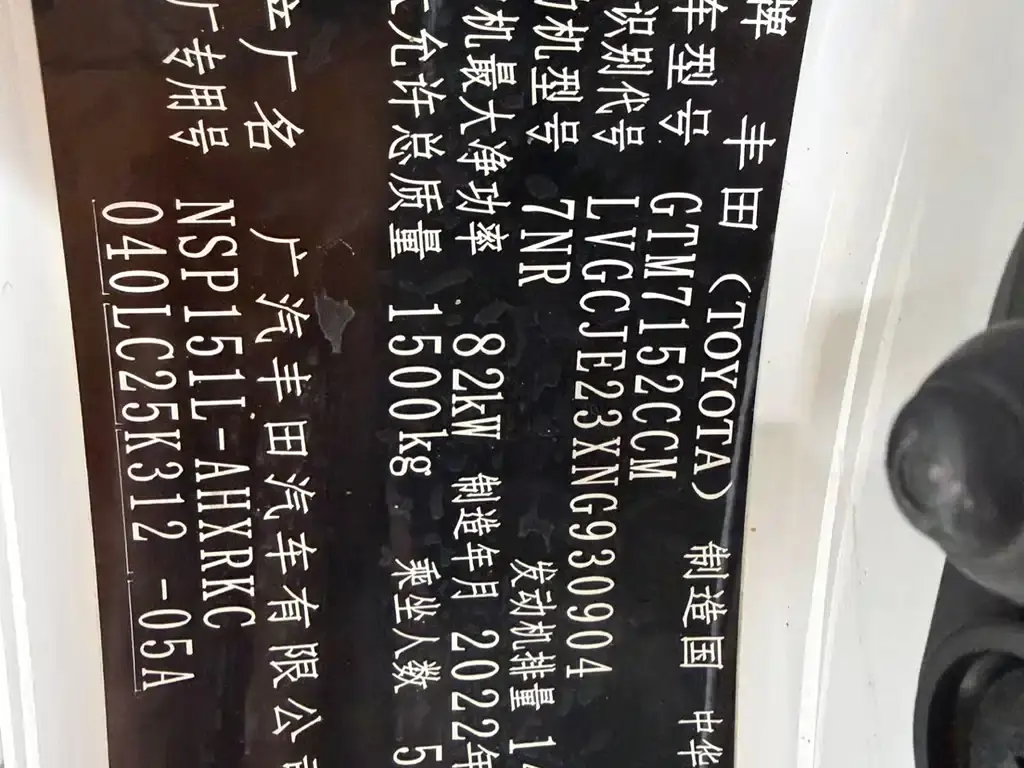 牌 丰田 (TOYOTA) 制造国 中华
车型号 GTM7152CCM
识别代号 LVGCJE23XNG930904
机型号 7NR 发动机排量 14
机最大净功率 82kW 制造年月 2022年
允许总质量 1500kg 乘坐人数 5
厂名 广汽丰田汽车有限公
厂专用号 NSP151L-AHXRKC
040LC25K312 -05A